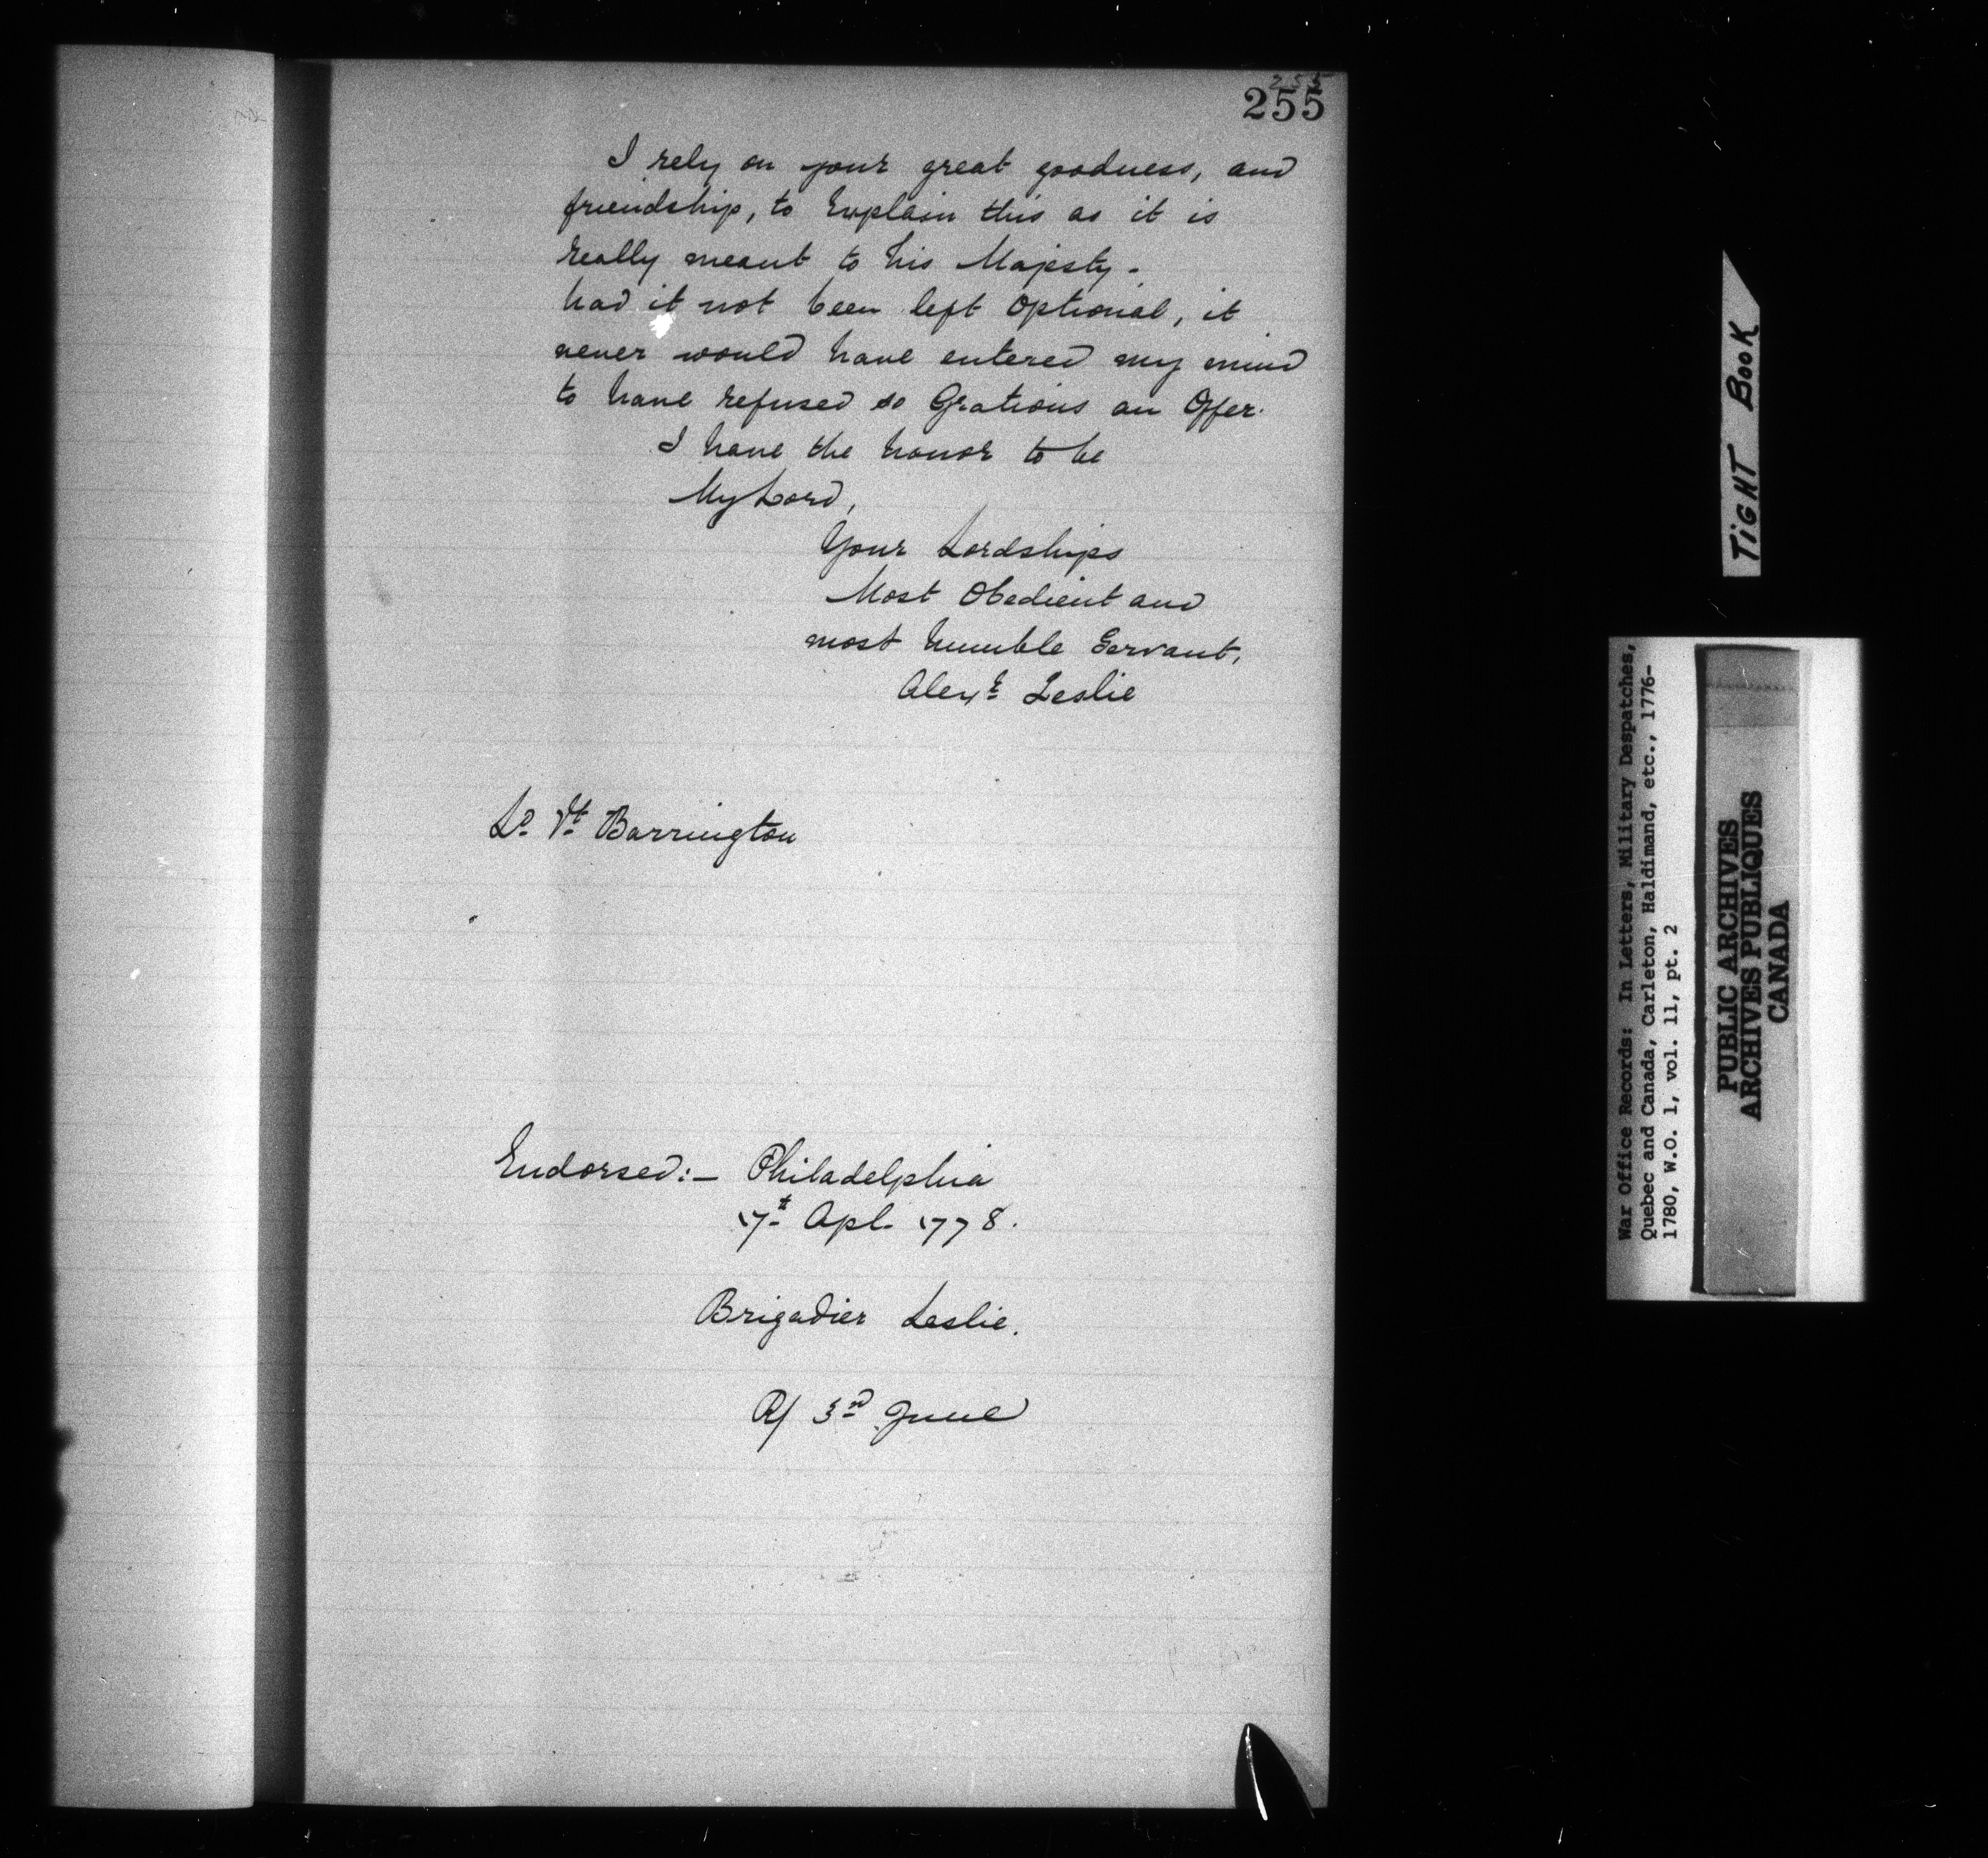 255
255
I rely on your great goodness, and
friendship, to Explain this as it is
really meant to his Majesty.
had it not been left Optional, it
never would have entered my mind
to have refused so Gratious an Offer.
I have the honor to be
My Lord,
Your Lordships
Most Obedient and
most humble Servant,
Alexr Leslie
Ld Vt Barrington
Endorsed:- Philadelphia
17t Apl 1778.
Brigadier Leslie.
R/ 3rd June
TIGHT BOOK
War Office Records: In Letters, Military Despatches,
Quebec and Canada, Carleton, Haldimand, etc., 1776-
1780, W.O. 1, vol. 11, pt. 2
PUBLIC ARCHIVES
ARCHIVES PUBLIQUES
CANADA